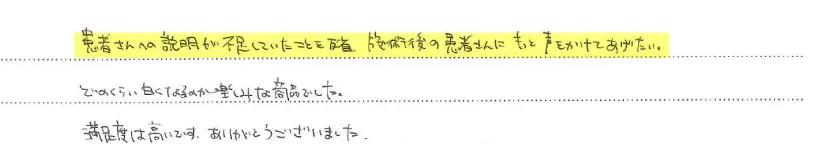 患者さんへの説明が不足していたことを反省、施術後の患者さんにもっと声をかけてあげたい。
どのくらい白くなるのか楽しみな商品でした。
満足度は高いです。ありがとうございました。